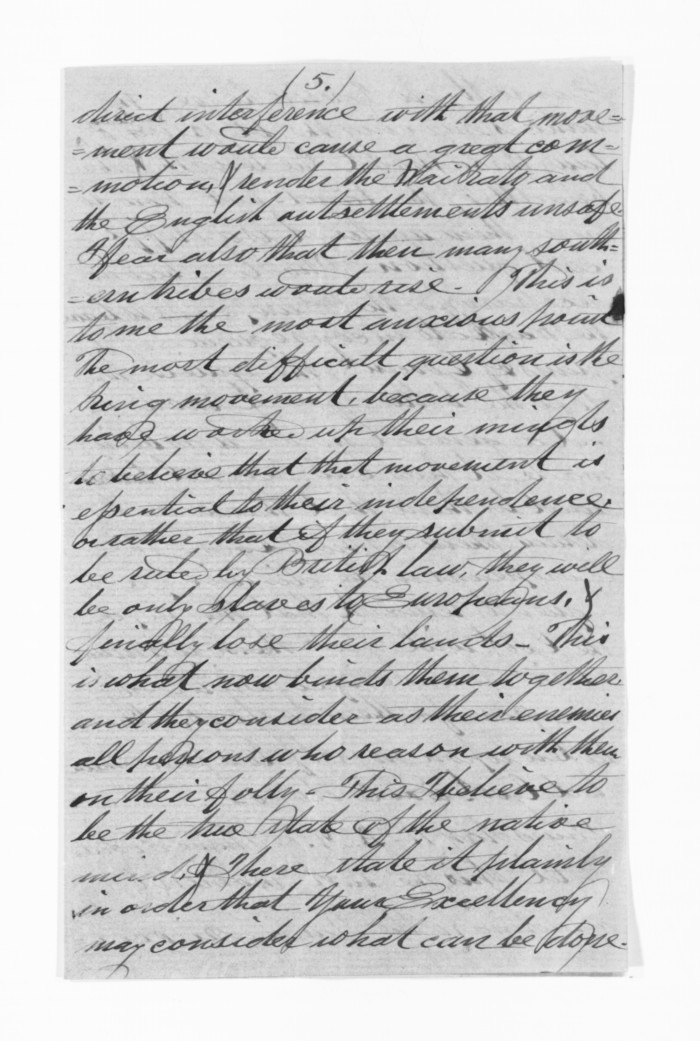 (5.)
direct interference with that move=
=ment would cause a great com=
=motion, & render the Waikato and
the English outsettlements unsafe
I fear also that then many south=
=ern tribes would rise - This is
to me the most anxious point
The most difficult question is the
King movement, because they
have worked up their minds
to believe that that movement is
essential to their independence.
or rather that if they submit to
be ruled by British law, they will
be only slaves to Europeans, &
finally lose their lands - This
is what now binds them together
and they consider as their enemies
all persons who reason with them
on their folly - This I believe to
be the true state of the native
mind, & I here state it plainly
in order that Your Excellency
may consider what can be done.